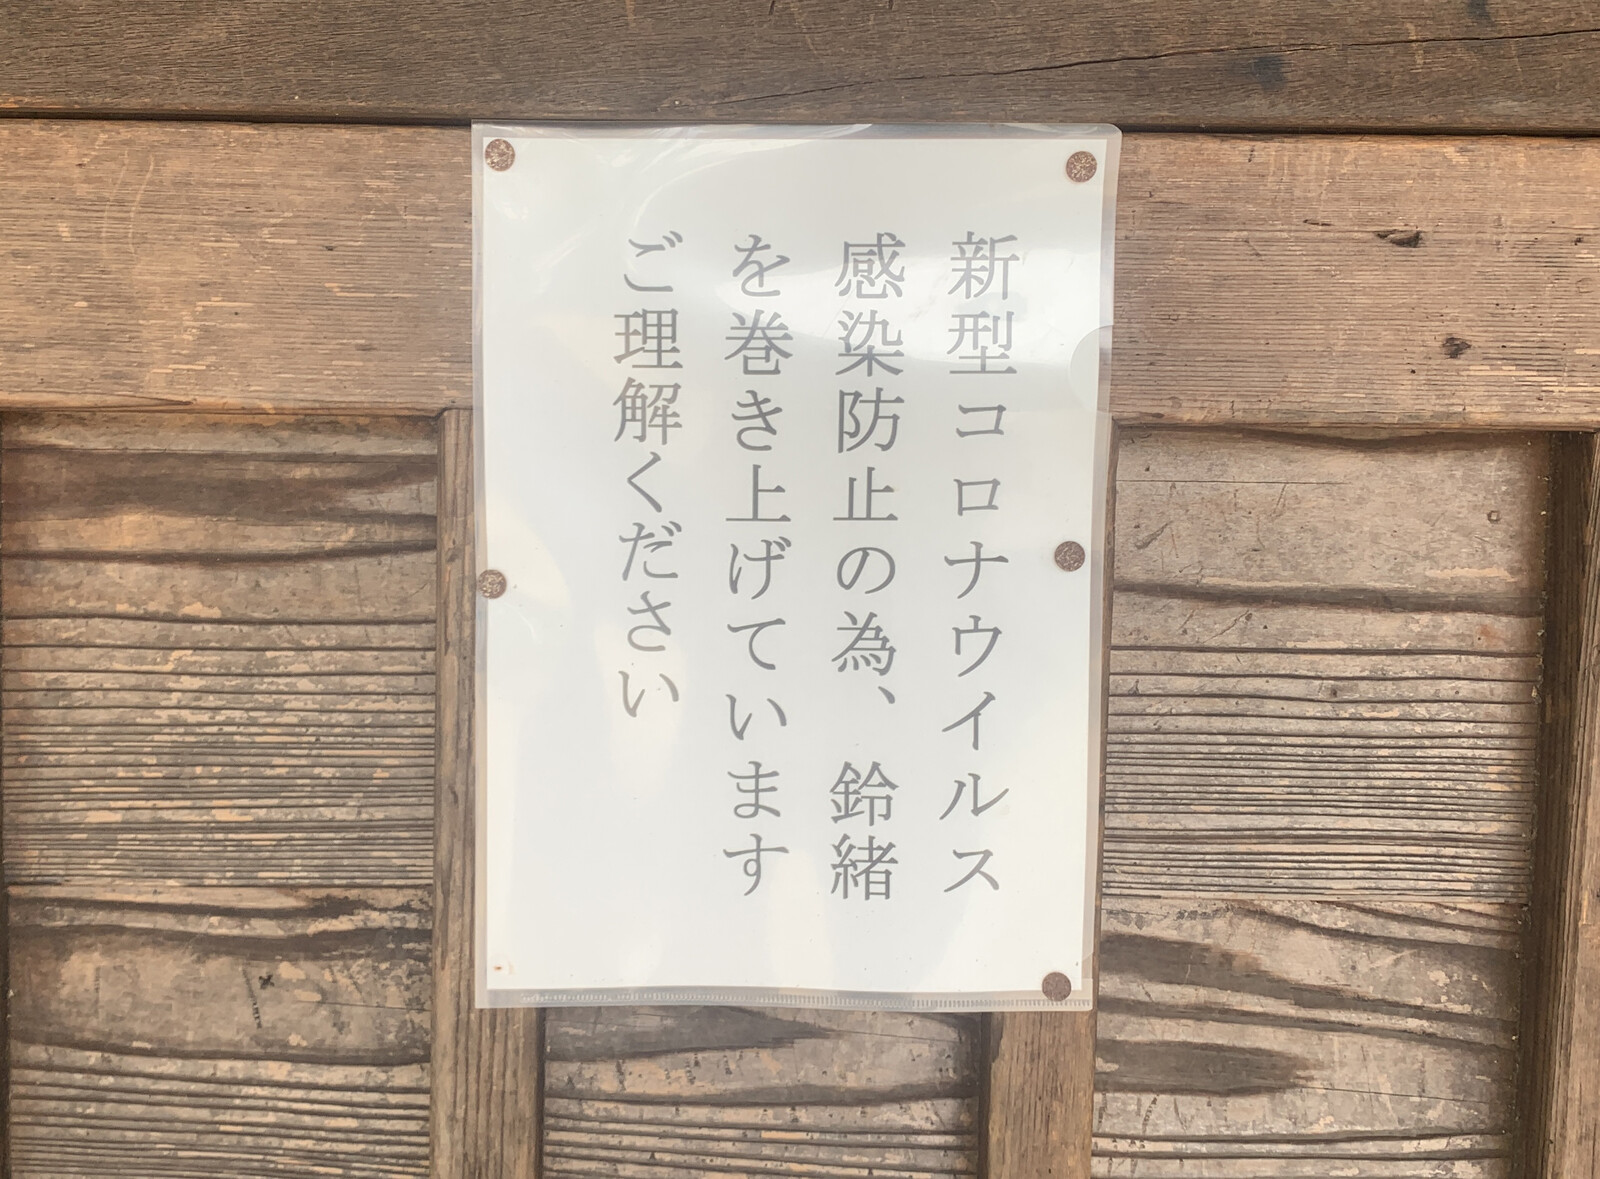 新型コロナウイルス
感染防止の為、鈴緒
を巻き上げています
ご理解ください